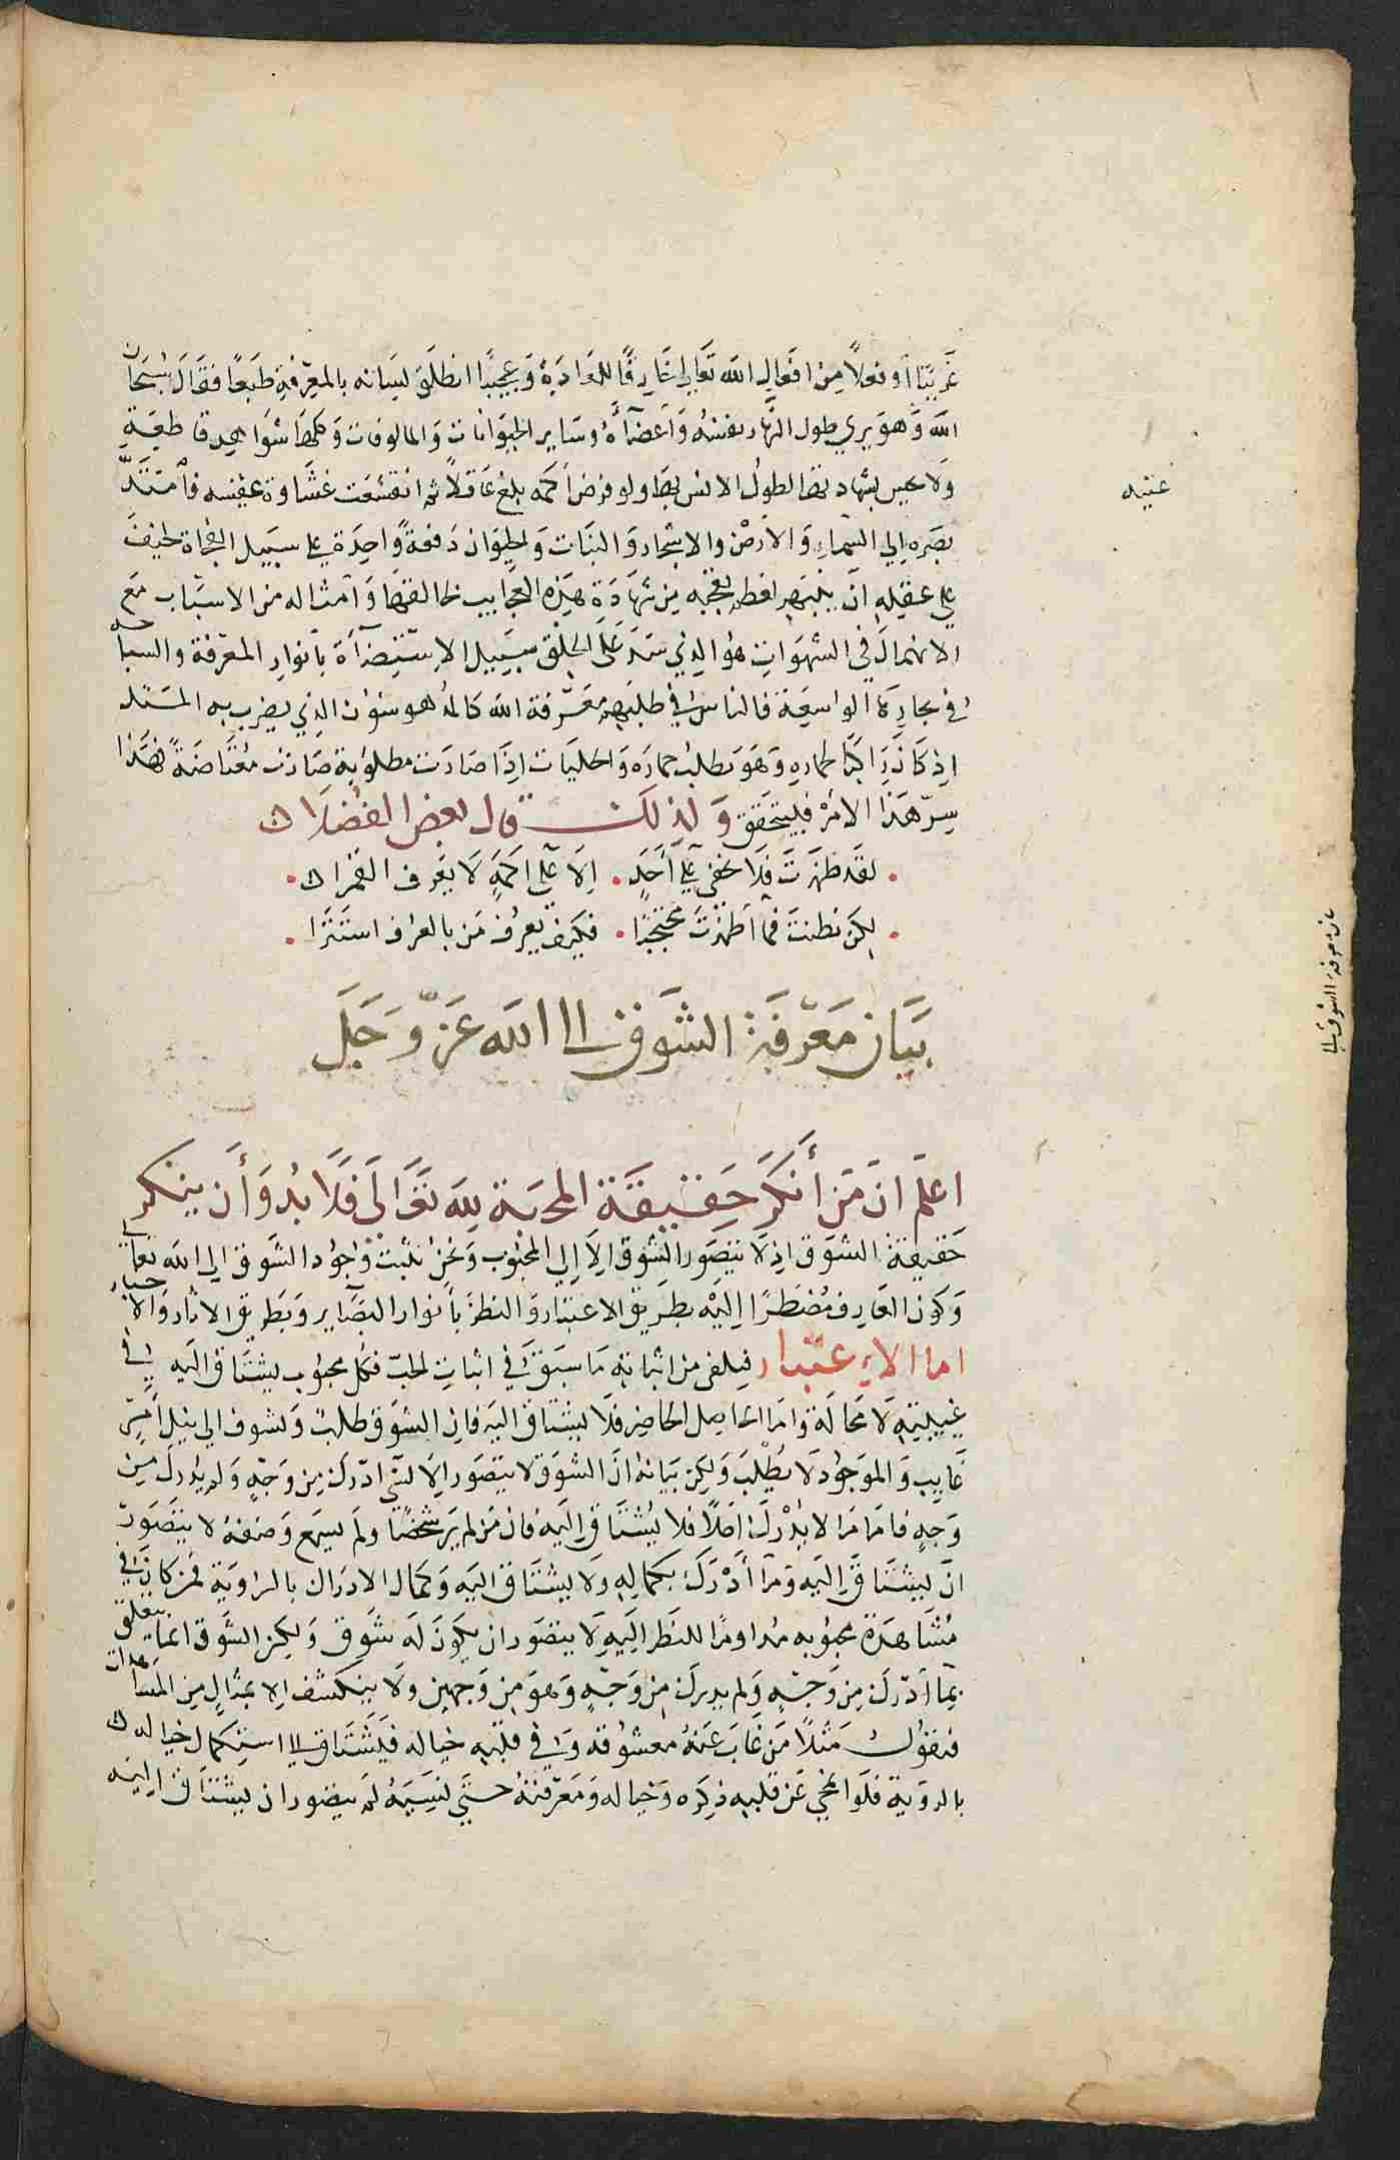 غريبًا أو فعلاً من افعال الله تعالى خارقًا للعادة وعجيبًا انطلق لسانه بالمعرفة طبعًا فقال سبحان
الله وهو يري طول النهار نفسه وأعضآءه وساير الحيوانات والمالوفات وكلها شواهد قاطعة
ولا يحس بشهادتها لطول الانس بها ولو فرض أكمه بلغ عاقلاً ثم انقشعت غشاوة عينه فأمتدّ
بصره الي السماء والأرض والاشجار والنبات والحيوان دفعةً واحدة علي سبيل الفجاة لخيف
علي عقله ان ينبهر لفطر تعجبه من شهادة هذه العجايب لخالقها وأمثاله من الاسباب مع
الانهماك في الشهوات هو الذي سد على الخلق سبيل الاستضآءة بأنوار المعرفة والسباحه
في بحارها الواسعة فالناس في طلبهم معرفة الله كالمدهوش الذي يضرب به المثل
اذ كان راكبًا لحماره وهو يطلب حماره والجليات إذا صارت مطلوبة صارت معتاضةً فهذا
سرّ هذا الأمر فليتحقق ولذلك قال بعض الفضلا
لقد ظهرت فلا تخفي علي أحد . الا علي اكمهٍ لا يعرف القمرا
لكن بطنت فما أظهرت محتجبًا . فكيف يعرف من بالعرف استترا
بيان معرفة الشوق الى الله عز وجل
اعلم ان من أنكر حقيقة المحبة لله تعالى فلا بد وأن ينكر
حقيقة الشوق اذ لا يتصور الشوق الا إلي المحبوب ونحن نثبت وجود الشوق الي الله تعالى
وكون العارف مضطرًا اليه بطريق الاعتبار والنظر بأنوار البصآير وبطريق الاثار والاخبار
اما الاعتبار فيلفى من اثباته ما سبق في اثبات الحبّ فكل محبوب يشتاق اليه في
غيبته لا محالة واما الحاصل الحاضر فلا يشتاق اليه فان الشوق طلب وتشوف الي نيل أمرٍ
غايب والموجود لا يطلب ولكن بيانه ان الشوق لا يتصور الا لشي ادرك من وجهٍ ولم يدرك من
وجهٍ فاما ما لا يدرك اصلاً فلا يشتاق اليه فان من لم ير شخصًا ولم يسمع وصفه لا يتصور
ان يشتاق اليه وما أدرك بكماله ولا يشتاق اليه وكمال الادراك بالراوية فمن كان في
مشاهدة محبوبه مداومًا للنظر اليه لا يتصور ان يكون له شوق ولكن الشوق انما يتعلق
بما ادرك من وجهٍ ولم يدرك من وجهٍ وهو من وجهين ولا ينكشف الا بمثال من المشاهدات
فنقول مثلاً من غاب عنه معشوقه وفي قلبه خياله فيشتاق الى استكمال خياله
بالروية فلو انمحي عن قلبه ذكره وخياله ومعرفته حتي نسيه لم يتصور ان يشتاق اليه
عينه
بيان معرفة الشوق الى